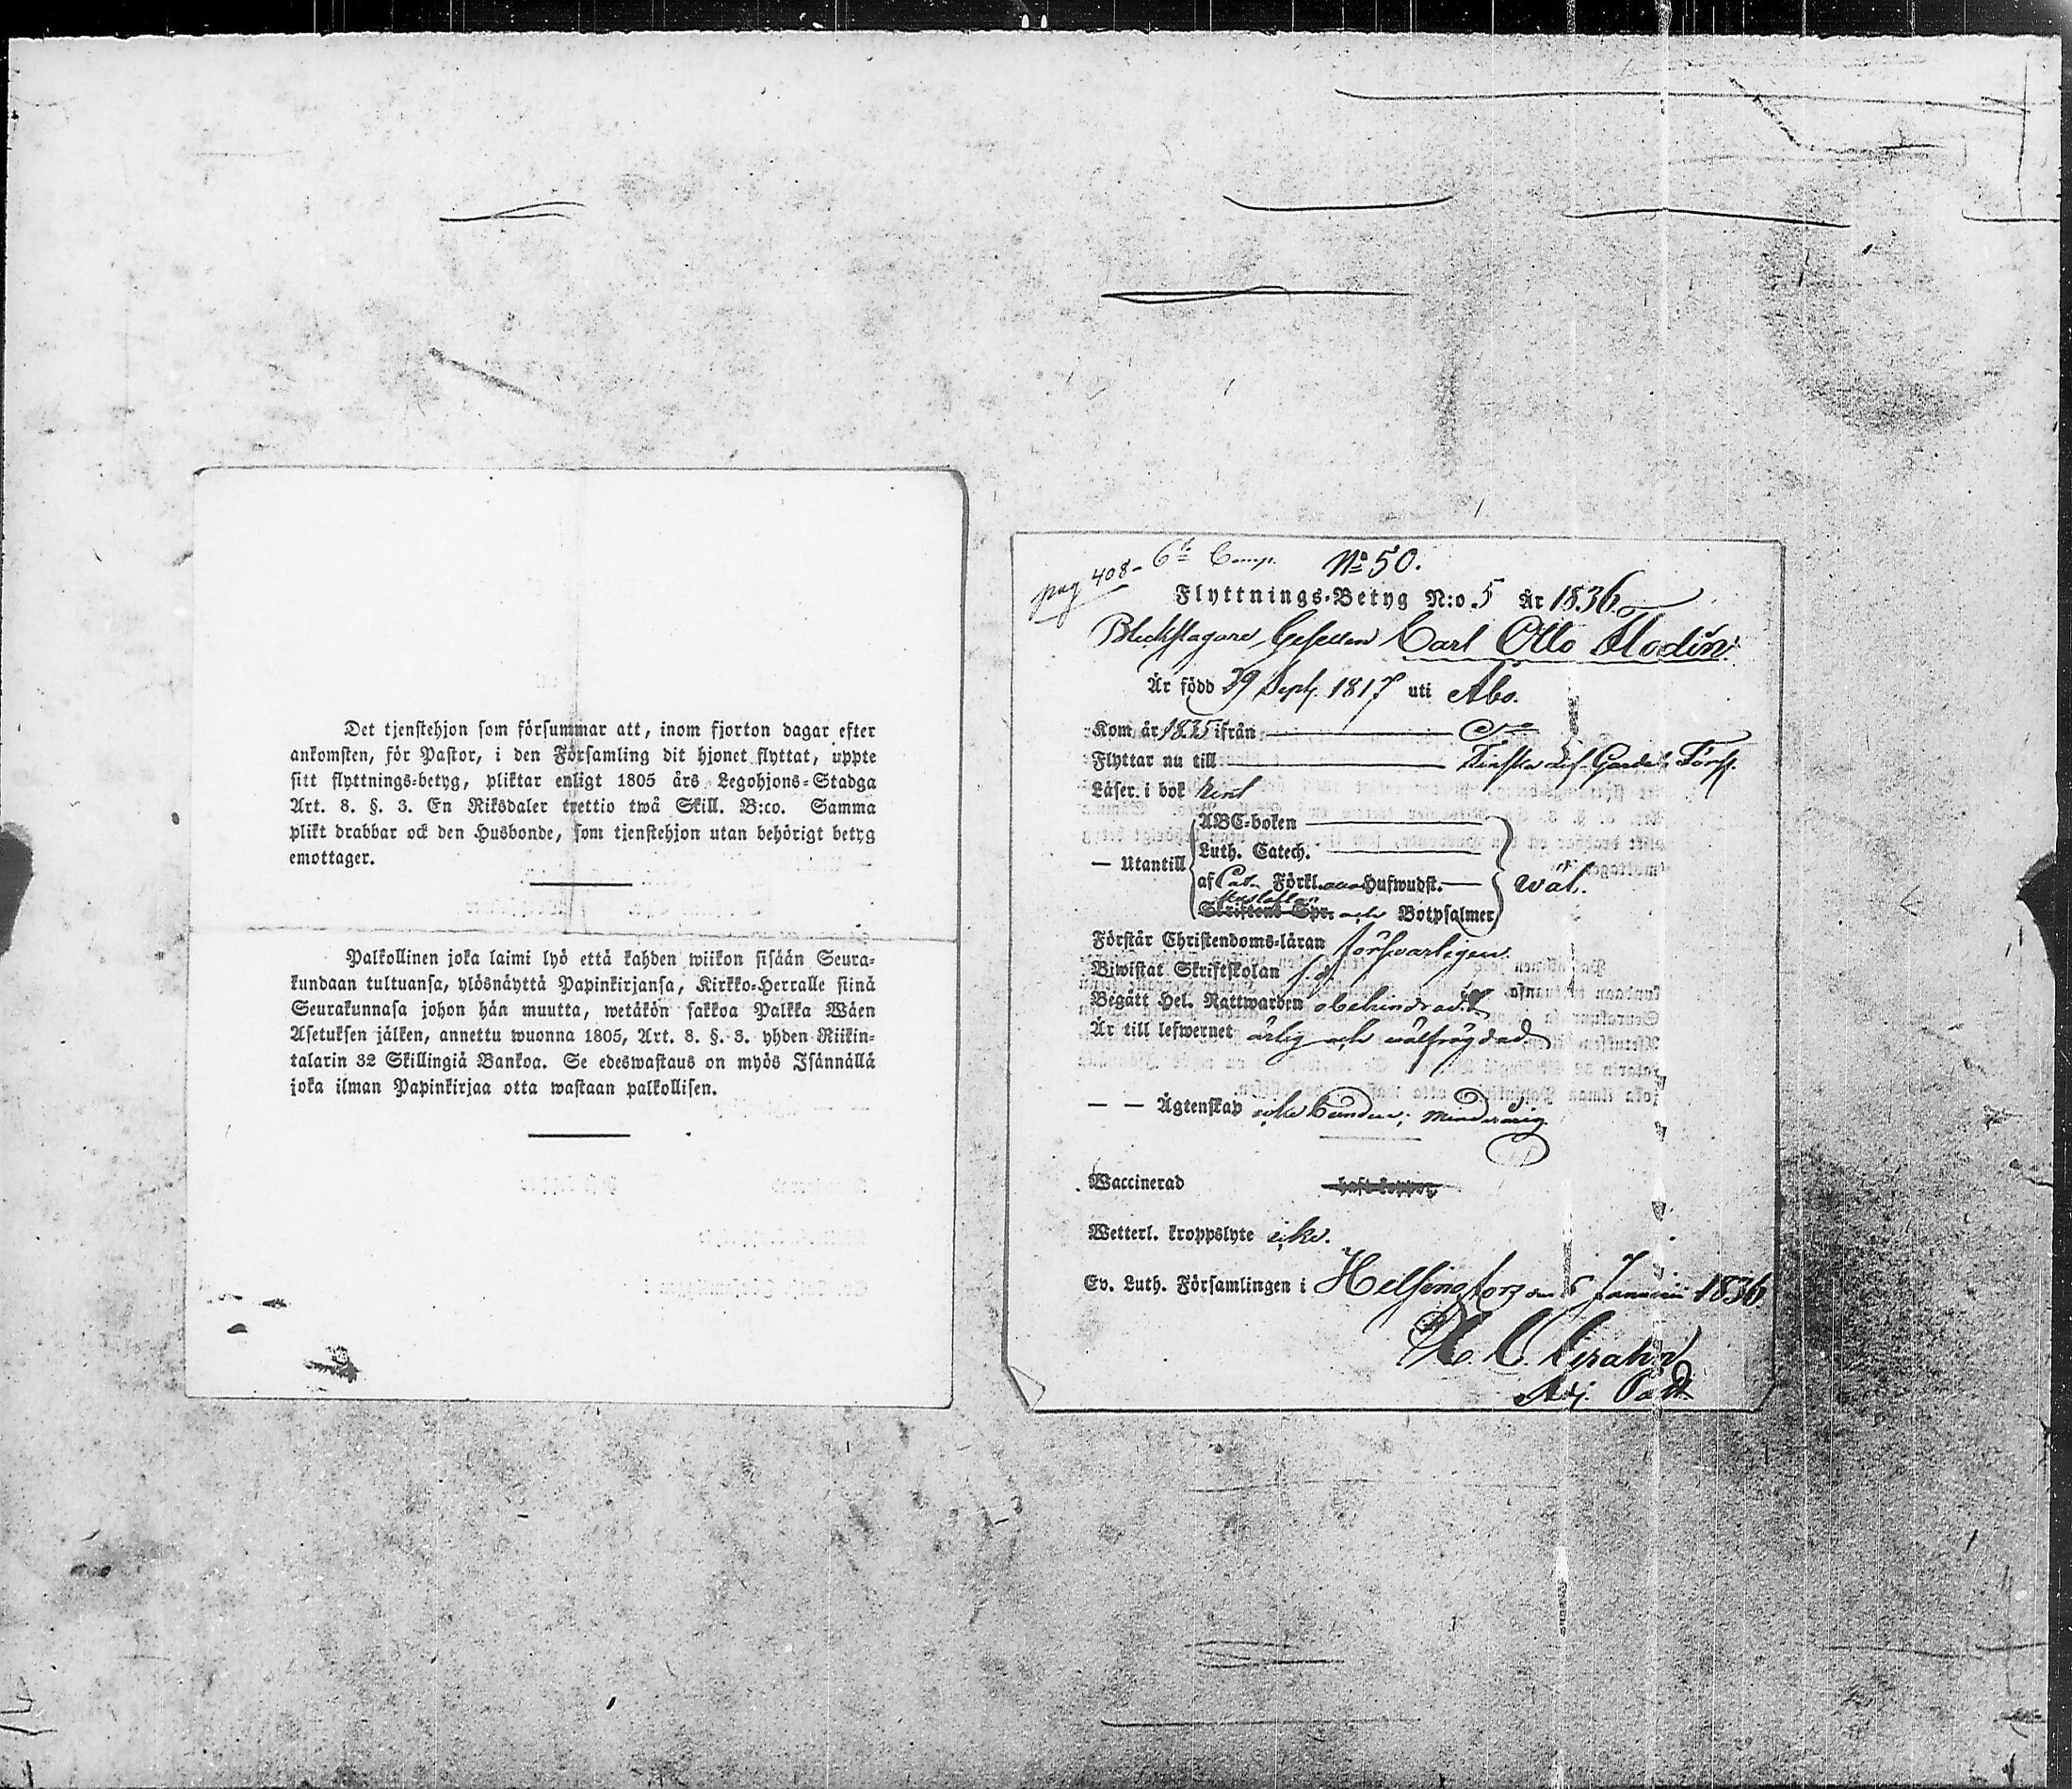 Det tjenstehjon som försummar att, inom fjorton dagar efter
ankomsten, för Pastor, i den Församling dit hjonet flyttat, uppte
sitt flyttnings-betyg, pliktar enligt 1805 års Legohjons-Stadga
Art. 8. §. 3. En Riksdaler trettio twå Skill. B:co. Samma
plikt drabbar ock den Husbonde, som tjenstehjon utan behörigt betyg
emottager.
Palkollinen joka laimi lyö että kahden wiikon sisään Seura-
kundaan tultuansa, ylösnäyttä Papinkirjansa, Kirkko-Herralle siinä
Seurakunnasa johon hän muutta, wetäkön sakkoa Palkka Wäen
Asetuksen jälken, annettu wuonna 1805, Art. 8. §. 3. yhden Riikin-
talarin 32 Skillingiä Bankoa. Se edeswastaus on myös Isännällä
joka ilman Papinkirjaa otta wastaan palkollisen.
pag 408- 6te Comp. No 50.
Flyttnings-Betyg N:o 5 År 1836
Bleckslagare Gesellen Carl Otto Flodin
Är född 29 Sept. 1817 uti Åbo.
Kom år 1835 ifrån
Flyttar nu till Finska Lif Gardes Förs.
Läser i bok rent
ABC-boken
Luth. Catech.
— Utantill
af Cat. Förkl. Hufwudst. wäl.
Skriftens Spr. och Botpsalmer
Förstår Christendoms-läran försvarligen
Biwistat Skriftskolan
Begått Hel. Nattwarden obehindrad
Är till lefwernet ärlig och välfrägdad
— — Ägtenskap icke bunden; minderårig
Waccinerad haft koppor
Wetterl. kroppslyte icke.
Ev. Luth. Församlingen i Helsingfors den 5 Januarii 1836
Adj. Past.